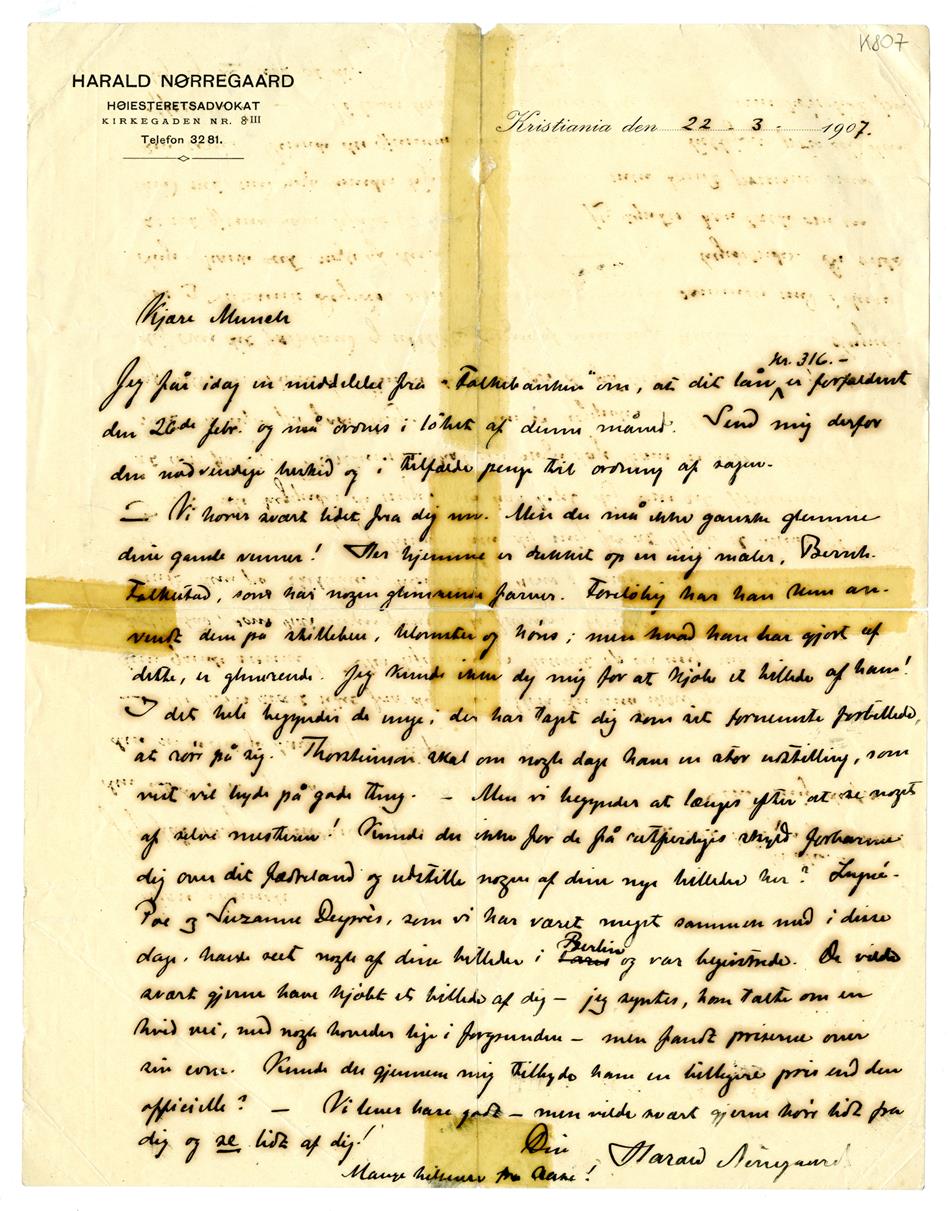 K807
HARALD NØRREGAARD
HØIESTERETSADVOKAT
KIRKEGADEN NR. 8 III
Telefon 3281.
Kristiania den 22 - 3 - 1907.
Kjære Munch
kr. 316.-
Jeg får idag en meddelelse fra "Folkebanken" om, at dit lån er forfaldent
den 26de febr. og må ordnes i løbet af denne måned. Send mig derfor
den nødvendige besked og i tilfælde penge til ordning af sagen.
— Vi hører svært lidet fra dig nu. Men du må ikke ganske glemme
dine gamle venner! Her hjemme er dukket op en ung maler, Bernh.
Folkestad, som har nogen glimrende farver. Foreløbig har han kun an-
vendt dem på skilleben, blomster og høns; men hvad han har gjort af
dette, er glimrende. Jeg kunde ikke dy mig for at kjøbe et billede af ham!
I det hele begynder de unge, der har taget dig som sit fornemste forbillede,
at røre på sig. Thorsteinson skal om nogle dage have en stor udstilling, som
vist vil byde på gode ting. — Men vi begynder at længes efter at se noget
af selve mesteren! Kunde du ikke for de få retfærdiges skyld forbarme
dig over dit fædreland og udstille nogen af dine nye billeder her? Lugné-
Poe og Suzanne Deprès, som vi har været meget sammen med i disse
dage, havde seet nogle af dine billeder i Paris Berlin og var begeistrede. De vilde
svært gjerne have kjøbt et billede af dig — jeg syntes, han talte om en
hvid vei, med nogle hoveder lige i forgrunden — men fandt priserne over
sin evne. Kunde du gjennem mig tilbyde ham en billigere pris end den
officielle? — Vi lever bare godt — men vilde svært gjerne høre lidt fra
dig og se lidt af dig!
Din Harald Nørregaard
Mange hilsener fra Aase!